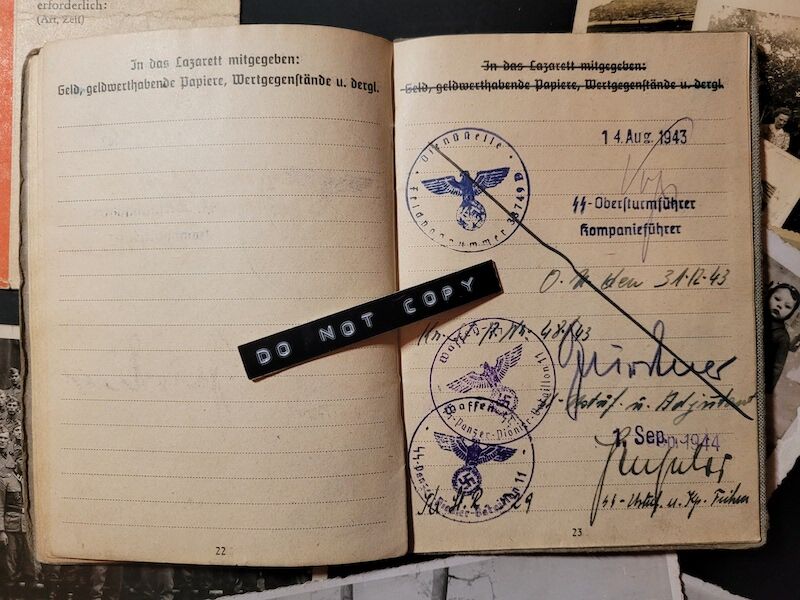 erforderlich:
(Art, Zeit)
In das Lazarett mitgegeben:
Geld, geldwerthabende Papiere, Wertgegenstände u. dergl.
22
In das Lazarett mitgegeben:
Geld, geldwerthabende Papiere, Wertgegenstände u. dergl.
14. Aug. 1943
Dienststelle
Feldpostnummer
SS-Obersturmführer
Kompanieführer
O.U. den 31.12.43
DO NOT COPY
48/43
Waffen-SS
SS-Panzer-Pionier-Bataillon 11
u. Adjutant
1. Sep. 1944
Waffen-SS
SS-Panzer-Pionier-Bataillon 11
SS-Ustuf. u. Kp. Führer
23